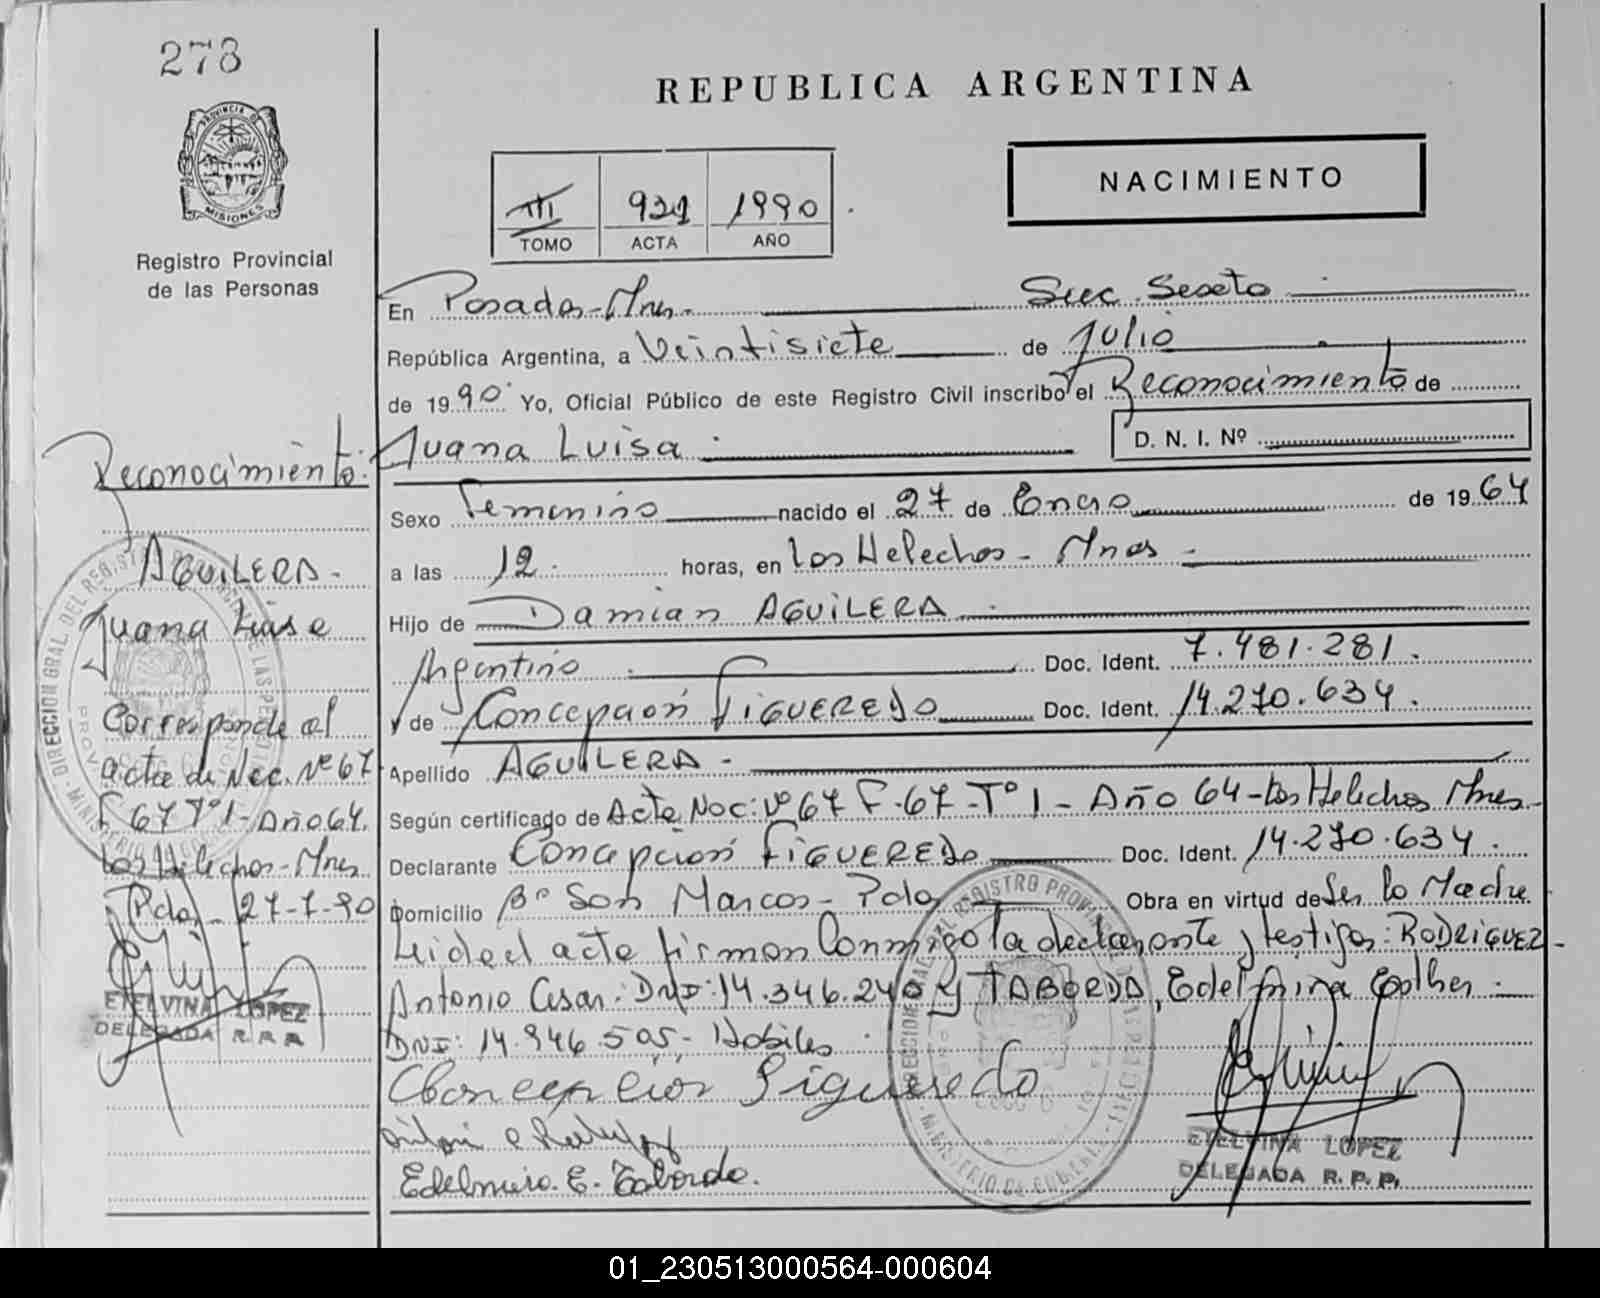 273
PROVINCIA DE
MISIONES
Registro Provincial
de las Personas
REPUBLICA ARGENTINA
NACIMIENTO
III 921 1990
TOMO ACTA AÑO
En Posadas-Mnes.- Secc. Sexta
República Argentina, a Veintisiete de Julio
de 1990 Yo, Oficial Público de este Registro Civil inscribo el Reconocimiento de
Juana Luisa D. N. I. Nº
Sexo Femenino nacido el 27 de Enero de 1964
a las 12 horas, en Los Helechos - Mnes -
Hijo de Damian AGUILERA
Argentino Doc. Ident. 7.481.281.
y de Concepción FIGUEREDO Doc. Ident. 14.270.634.
Apellido AGUILERA -
Según certificado de Acta Nac: Nº 67 F-67-Tº 1 - Año 64-Los Helechos Mnes-
Declarante Concepción FIGUEREDO Doc. Ident. 14.270.634.
Domicilio Bº San Marcos- Pdas Obra en virtud de Ser la Madre
Leida el acta firman Conmigo la declarante y testigos: RODRIGUEZ-
Antonio Cesar: DNI: 14.346.240 y TABORDA, Edelmira Esther -
DNI: 14.946.505,- Hábiles
Concepcion Figueredo
Edelmira E. Taborda.
ETELVINA LOPEZ
DELEGADA R. P. P.
Reconocimiento:
AGUILERA -
Juana Luisa
Corresponde al
acta de Nac. Nº 67
F 67 Tº 1- Año 64.
Los Helechos-Mnes
Pdas- 27-7-90
ETELVINA LOPEZ
DELEGADA R. P. P.
01_230513000564-000604